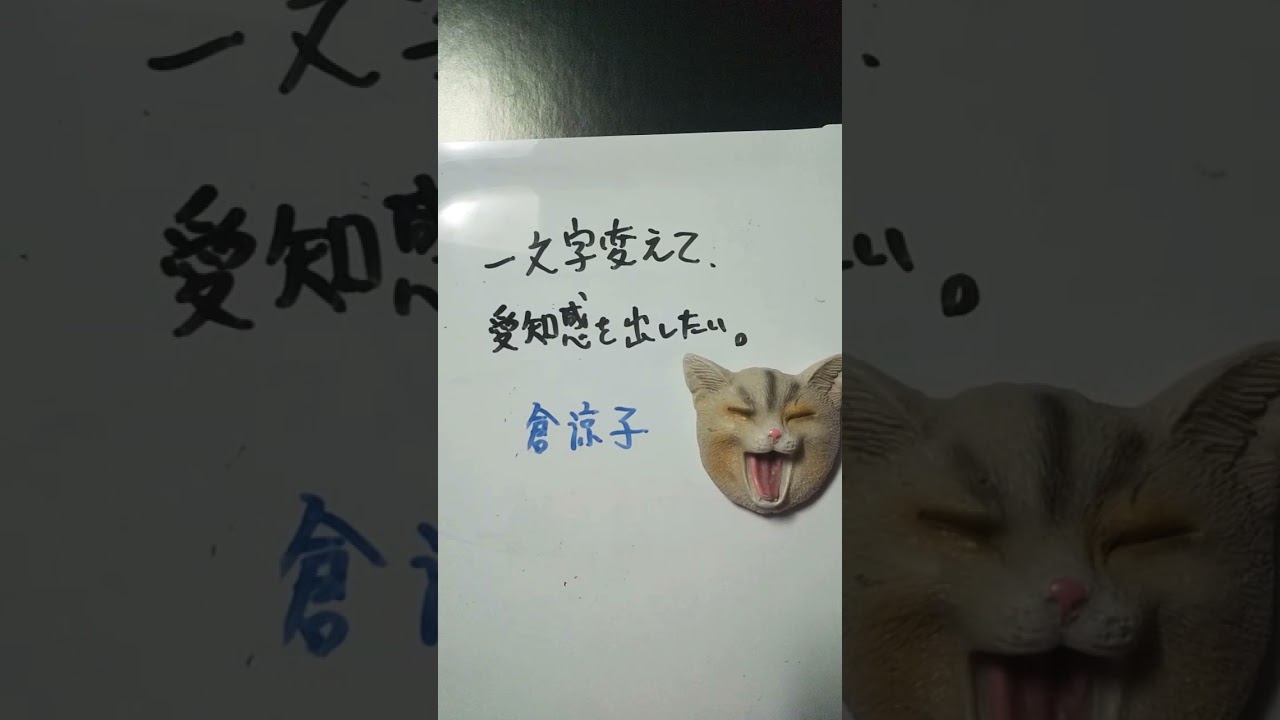 一文字変えて、
愛知感を出したい。
倉諒子